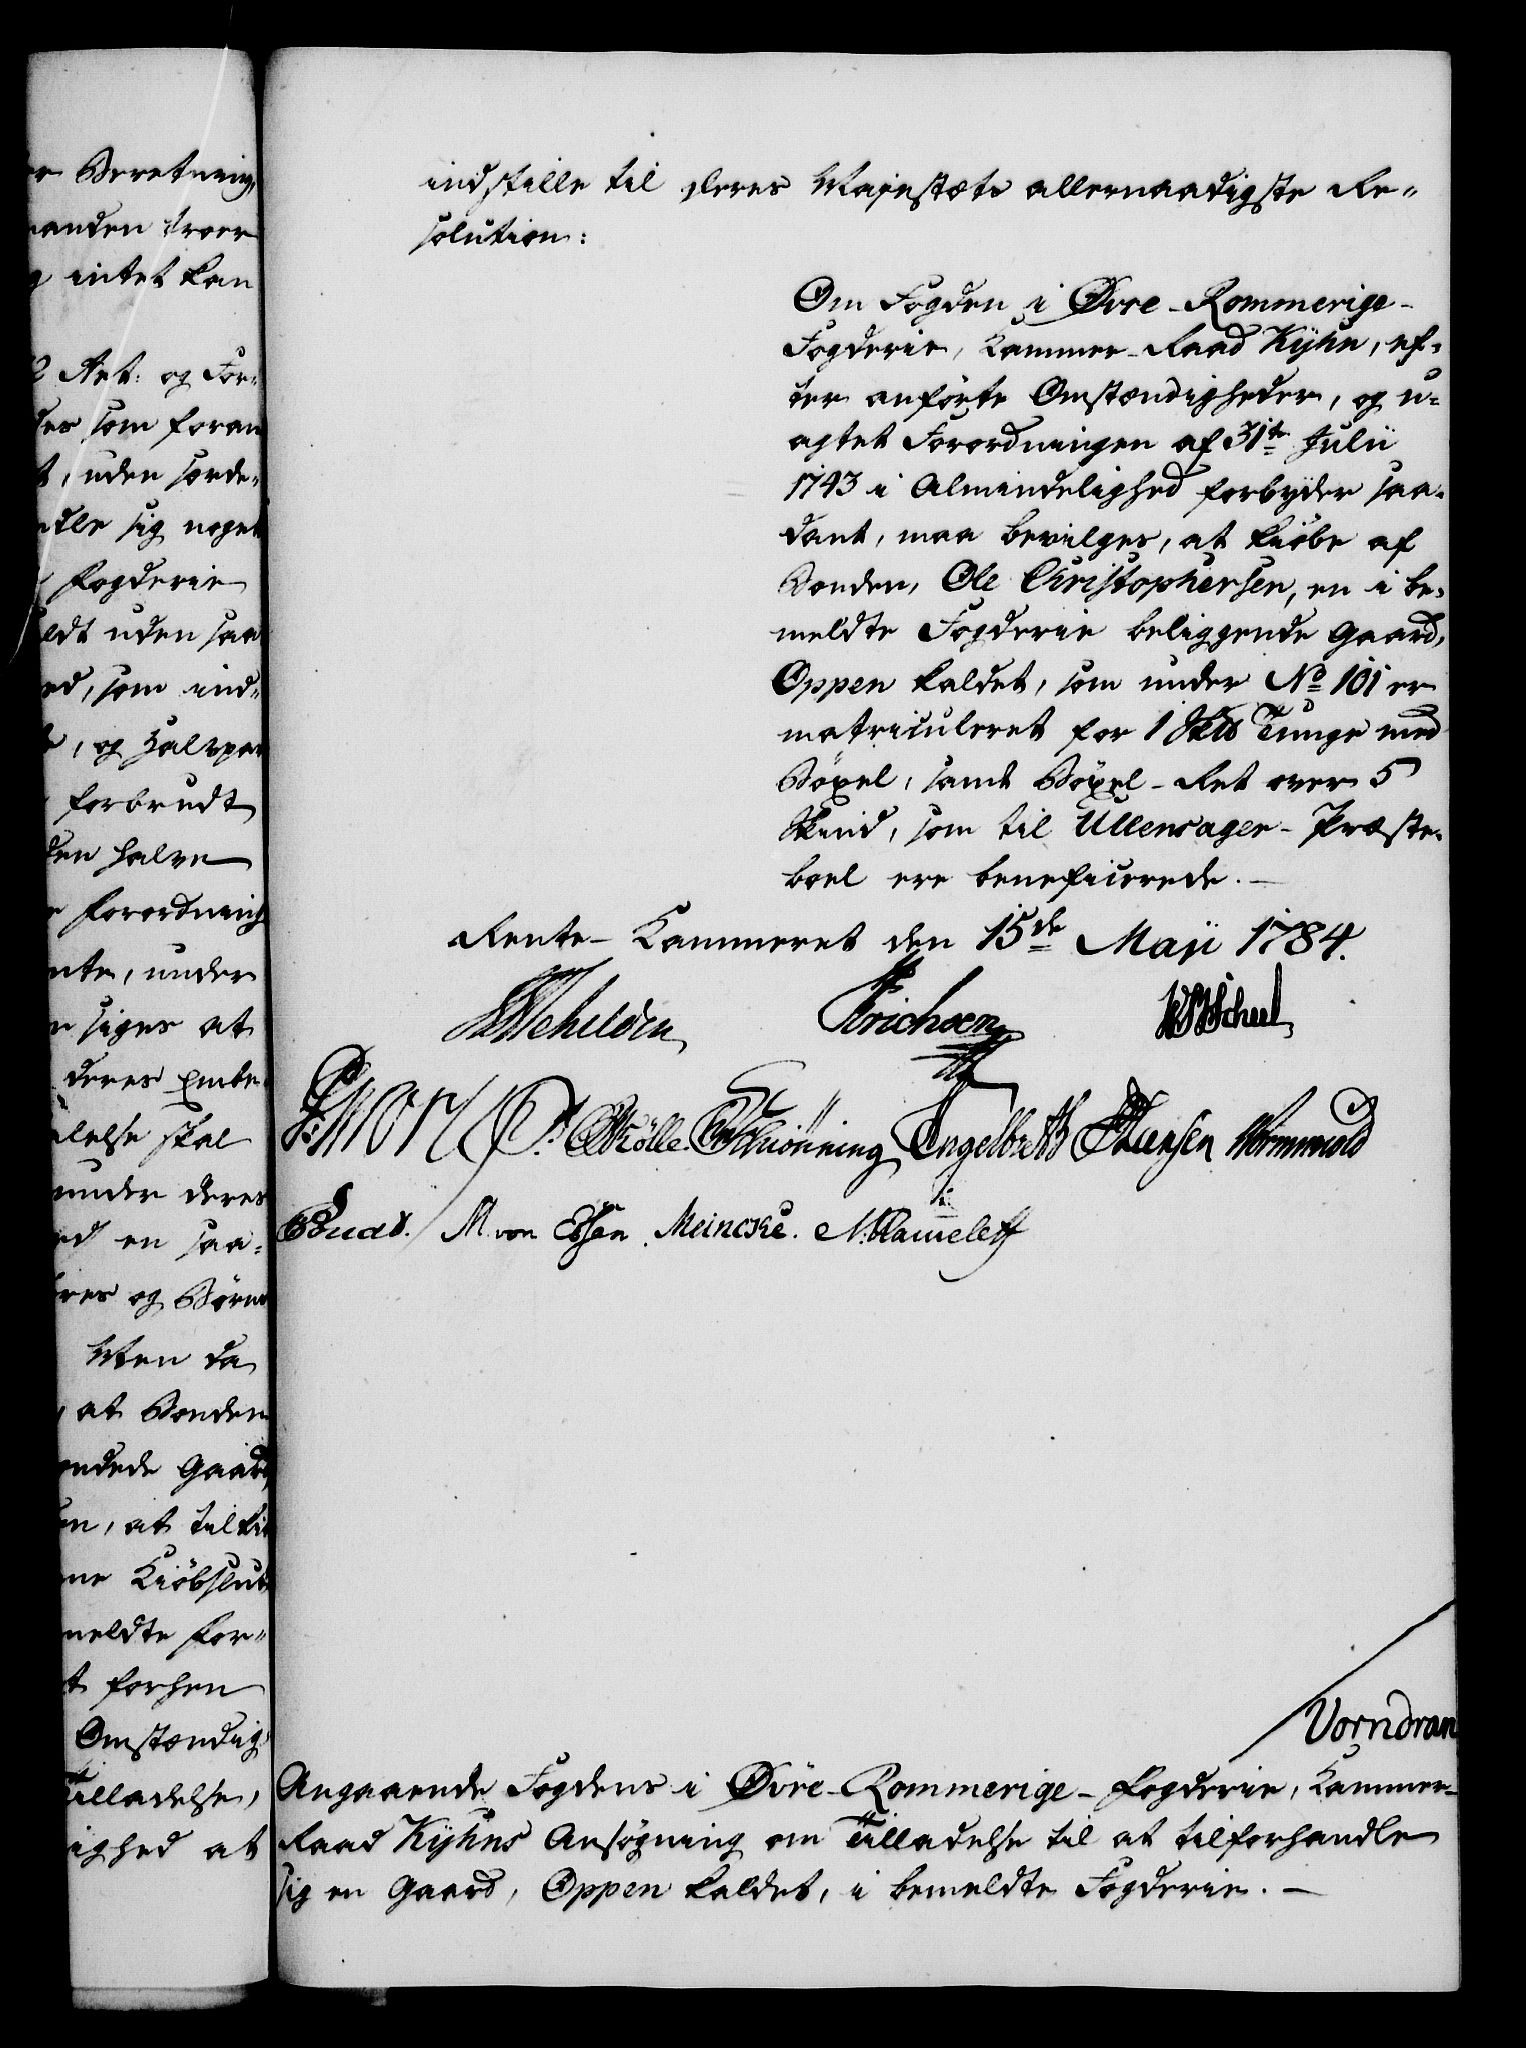 er Beretning,
manden troer
g intet kan
2 Art: og For-
des som foran
t, uden sorde-
ndle sig noget
Fogderie
ldt uden saa
ed, som ind-
, og Halvpar
forbrudt
den halve
e Forordning
nte, under
n siges at
deres Embe-
delse skal
under deres
ed en saa-
res og Børne
Men da
, at Bonden
ndede Gaard,
en, at tilki
ne Kiöbslut
meldte For-
t forhen
Omstændig
Tilladelse,
ighed at
indstille til Deres Majestæts allernaadigste Re-
solution:
Om Fogden i Øvre-Rommerige-
Fogderie, Kammer-Raad Kyhn, ef-
ter anførte Omstændigheder, og u-
agtet Forordningen af 31te Julii
1743 i Almindelighed forbyder saa-
dant, maa bevilges, at kiöbe af
Bonden, Ole Christophersen, en i be-
meldte Fogderie beliggende Gaard,
Oppen kaldet, som under No 101 er
matriculeret for 1 Skd Tunge med
Böxel, samt Böxel-Ret over 5
Skind, som til Ullensager-Præste-
boel ere beneficerede.
Rente-Kammeret den 15de Maji 1784.
Erichsen WScheel
CMölle Schiönning Engelbreth Hansen Wormwuld
M. von Essen. Meincke.
Vorndran
Angaaende Fogdens i Øvre-Rommerige-Fogderie, Kammer-
Raad Kyhns Ansögning om Tilladelse til at tilforhandle
sig en Gaard, Oppen kaldet, i bemeldte Fogderie.